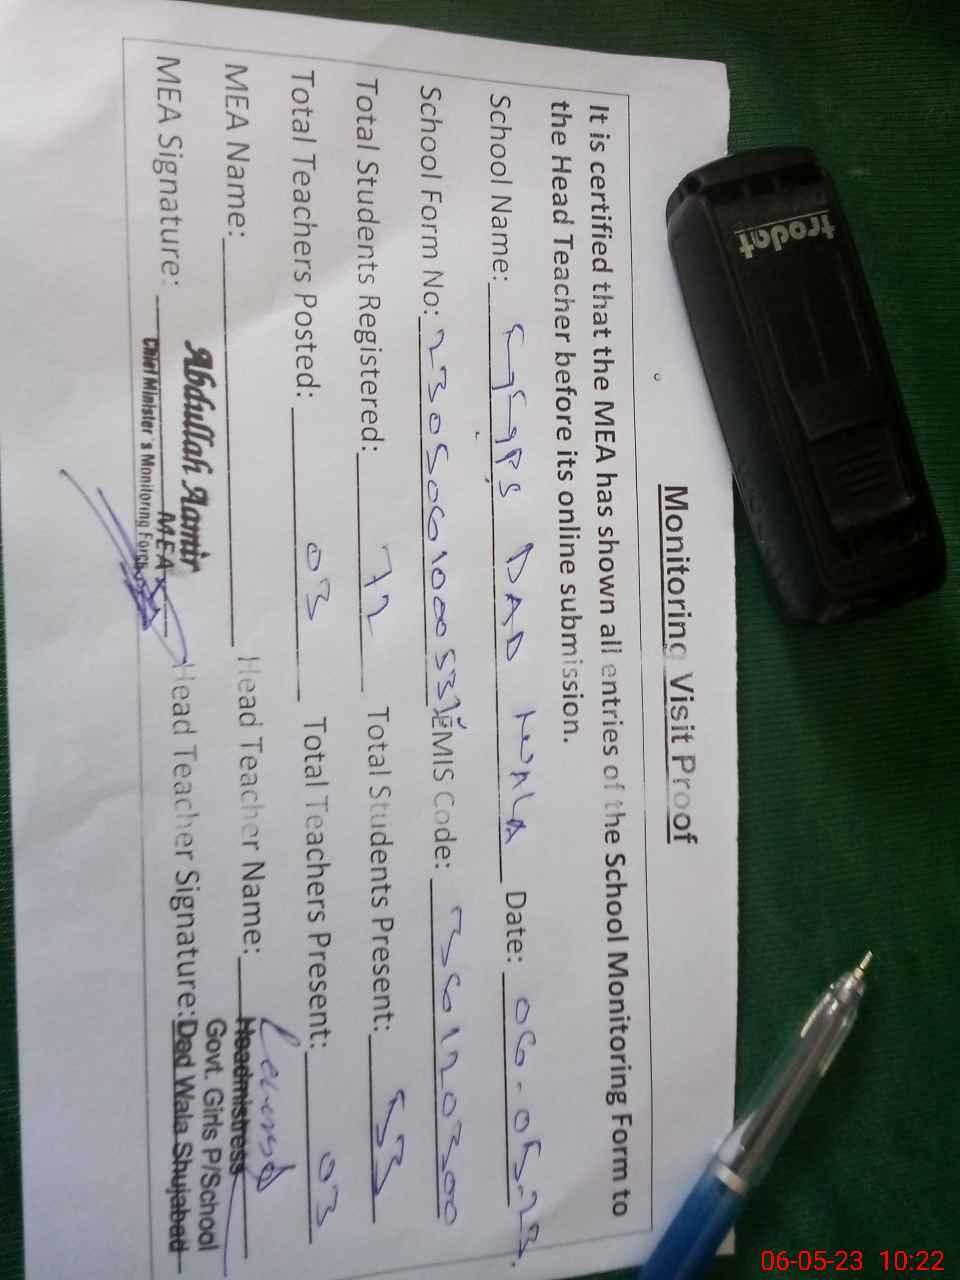 Monitoring Visit Proof
It is certified that the MEA has shown all entries of the School Monitoring Form to
the Head Teacher before its online submission.
School Name: GGPS DAD WALA Date: 06-05-23.
School Form No: EMIS Code: 36120300
Total Students Registered: 72 Total Students Present: 53
Total Teachers Posted: 03 Total Teachers Present: 03
MEA Name: Head Teacher Name:
Abdullah Aamir
MEA
Chief Minister's Monitoring Force
Headmistress
Govt. Girls P/School
MEA Signature: Head Teacher Signature: Dad Wala Shujabad
trodat
06-05-23 10:22